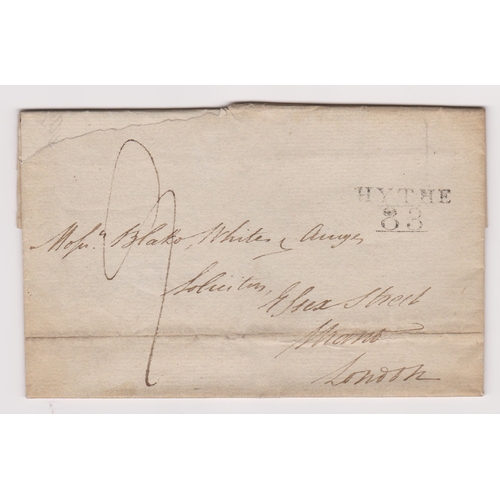 HYTHE
83
Messrs. Blake, White &
Solicitors, Essex Street
Strand
London
9